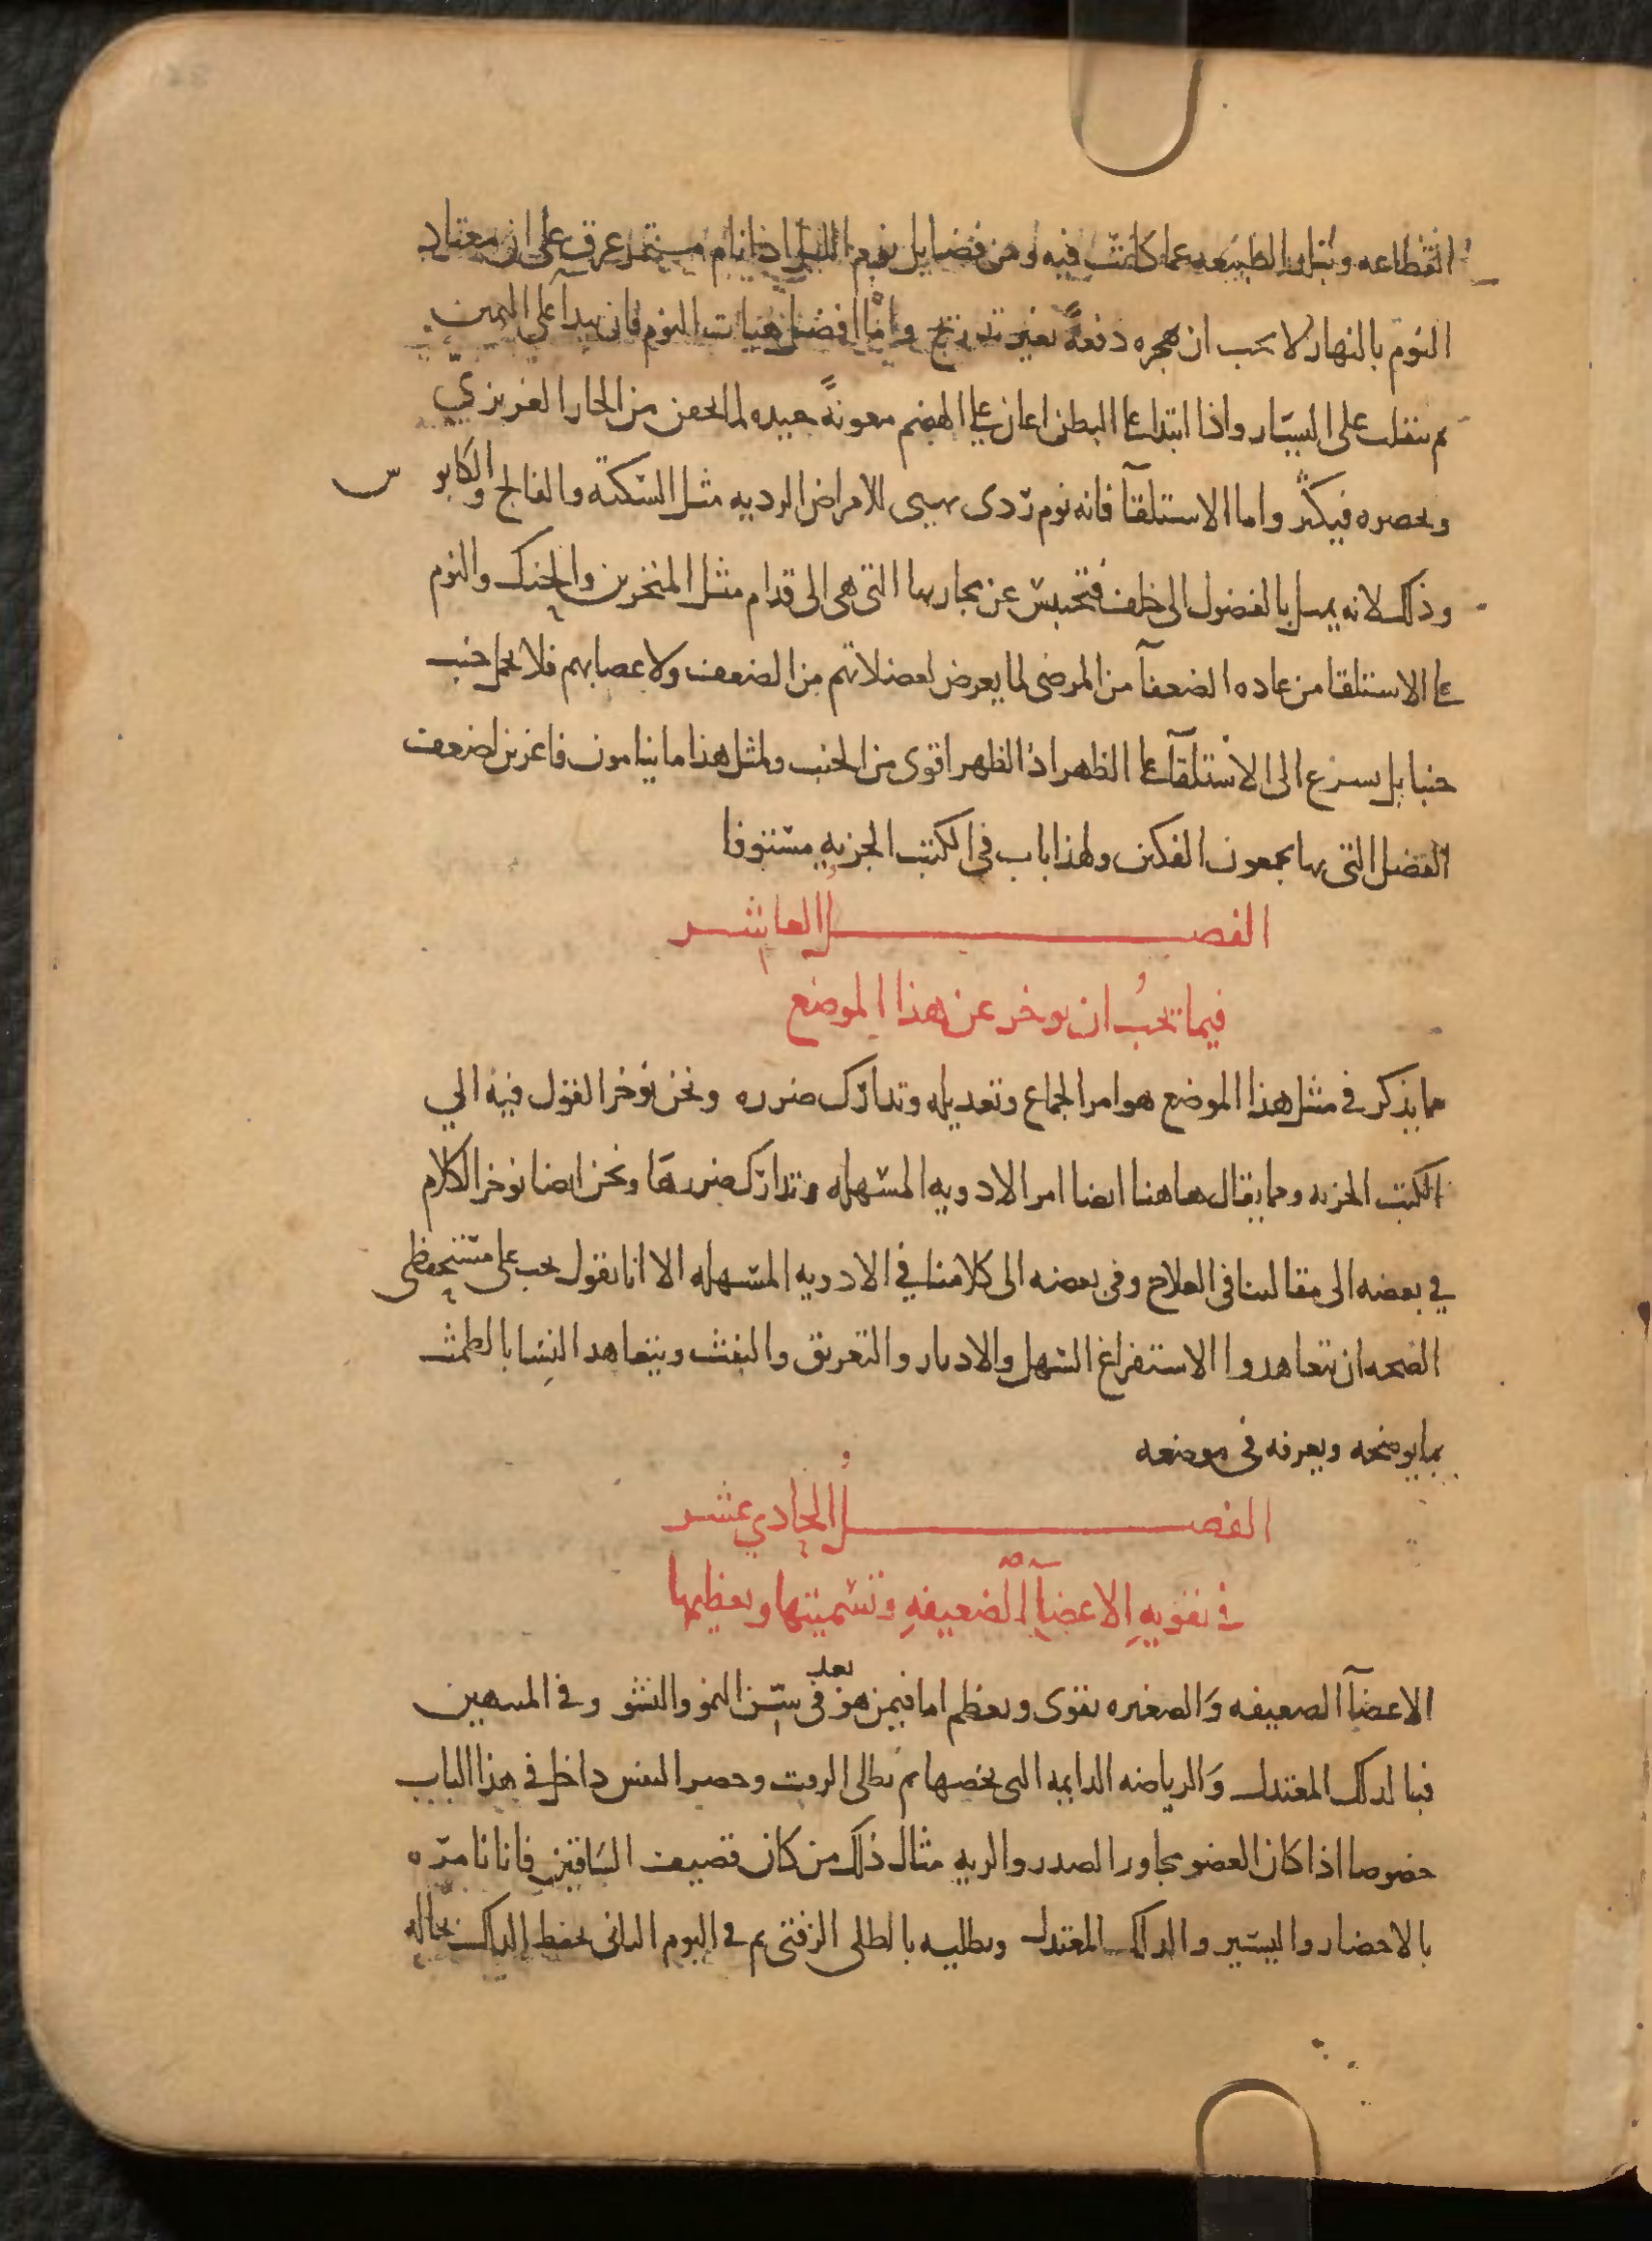 انقطاعه وتبلد الطبيعه عما كانت فيه ومن فضايل نوم الليل انه تام مستمر غرق على ان معتاد
النوم بالنهار لا يجب ان يهجره دفعةً بغير تدريج واما افضل هيات النوم فان يبدا على اليمين
ثم ينقلب على اليسار واذا ابتدا على البطن اعان على الهضم معونةً جيده لما يحقن من الحار الغريزي
ويحصره فيكثر واما الاستلقآ فانه نوم ردى يهيى للامراض الرديه مثل السكتة والفالج والكابوس
وذلك لانه يميل بالفضول الى خلف فتحتبس عن مجاريها التى هى الى قدام مثل المنخرين والحنك والنوم
على الاستلقا من عاده الضعفآ من المرضى لما يعرض لعضلاتهم من الضعف ولاعصابهم فلا يحمل جنب
جنبا بل يسرع الى الاستلقآ على الظهر اذ الظهر اقوى من الجنب ولمثل هذا ما ينامون فاغرين لضعف
العضل التى بها يجمعون الفكين ولهذا باب فى الكتب الجزيه مستوفا
الفصل العاشر
فيما يجب ان يوخر عن هذا الموضع
مما يذكر في مثل هذا الموضع هو امر الجماع وتعديله وتدارك ضرره ونحن نوخر القول فيه الي
الكتب الجزيه ومما يقال هاهنا ايضا امر الادويه المسهله وتدارك ضررها ونحن ايضا نوخر الكلام
في بعضه الى مقالتنا فى العلاج وفى بعضه الى كلامنا في الادويه المسهله الا انا نقول يجب على مستحفظى
الصحه ان يتعاهدوا الاستفراغ السهل والادرار والتعريق والنفث ويتعاهد النسا بالطمث
بما يوضحه ويعرفه فى موضعه
الفصل الحادي عشر
في تقويه الاعضآ الضعيفه وتسمينها وتعظيمها
الاعضآ الضعيفه والصغيره تقوى وتعظم اما فيمن هو بعد فى سن النمو والنشو وفى المنتهين
فبالدلك المعتدل والرياضه الدايمه التى تخصها ثم تطلى الزفت وحصر النفس داخل في هذا الباب
خصوصا اذا كان العضو مجاور الصدر والريه مثال ذلك من كان قصيف الساقين فانا نامره
بالاحضار واليسير والدلك المعتدل ونطليه بالطلى الزفتى ثم فى اليوم الثانى نحفظ الدلك بحاله